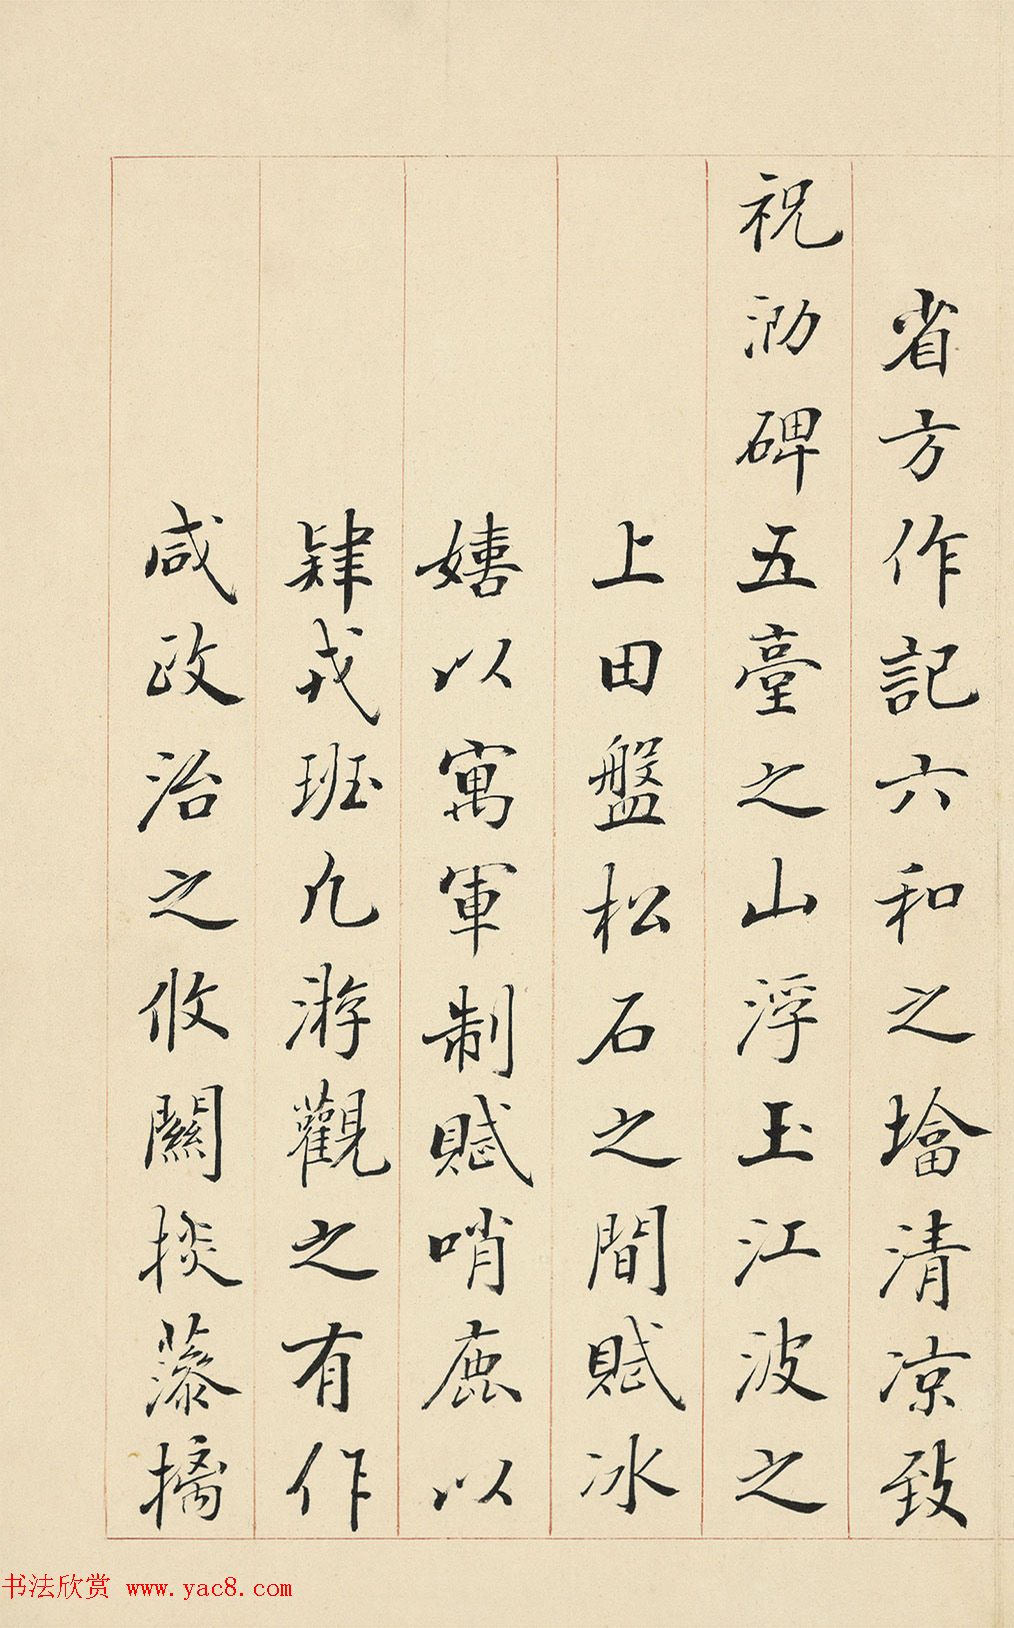 省方作記六和之墖清凉致
祝泐碑五臺之山浮玉江波之
上田盤松石之間賦冰
嬉以寓軍制賦哨鹿以
肄戎班凢游觀之有作
咸政治之攸關掞藻摛
书法欣赏 www.yac8.com